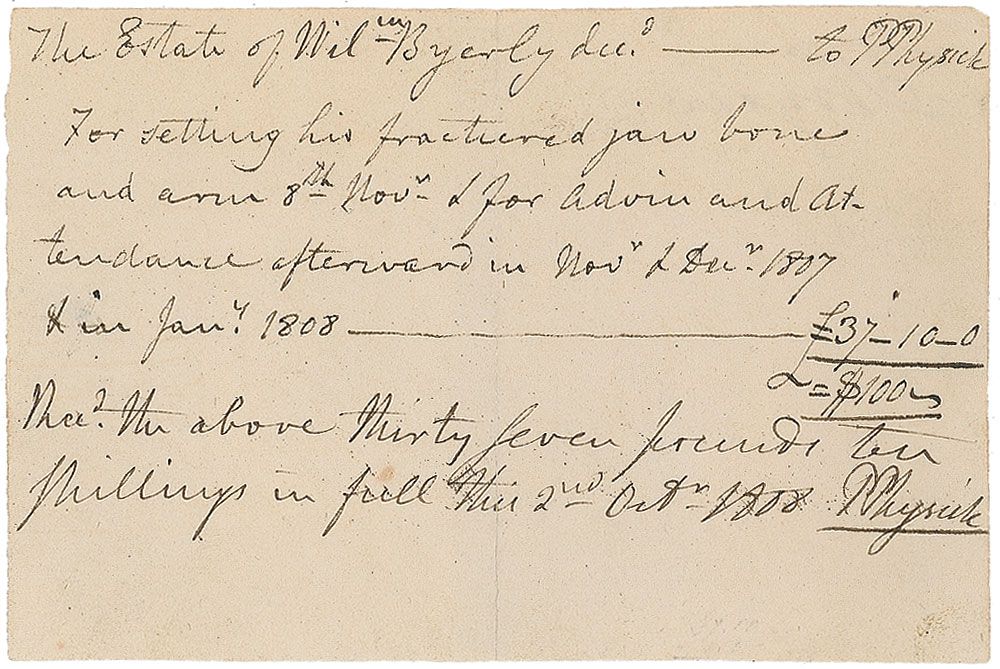 The Estate of Wilm Byerly decd — to PPhysick
For setting his fractiered jaw bone
and arm 8th Novr & for advin and At-
tendance afterward in Novr & Decr 1807
& in Jany 1808 — £37-10-0
= $100
Recd the above thirty seven pounds ten
shillings in full this 2nd Octr 1808 PPhysick